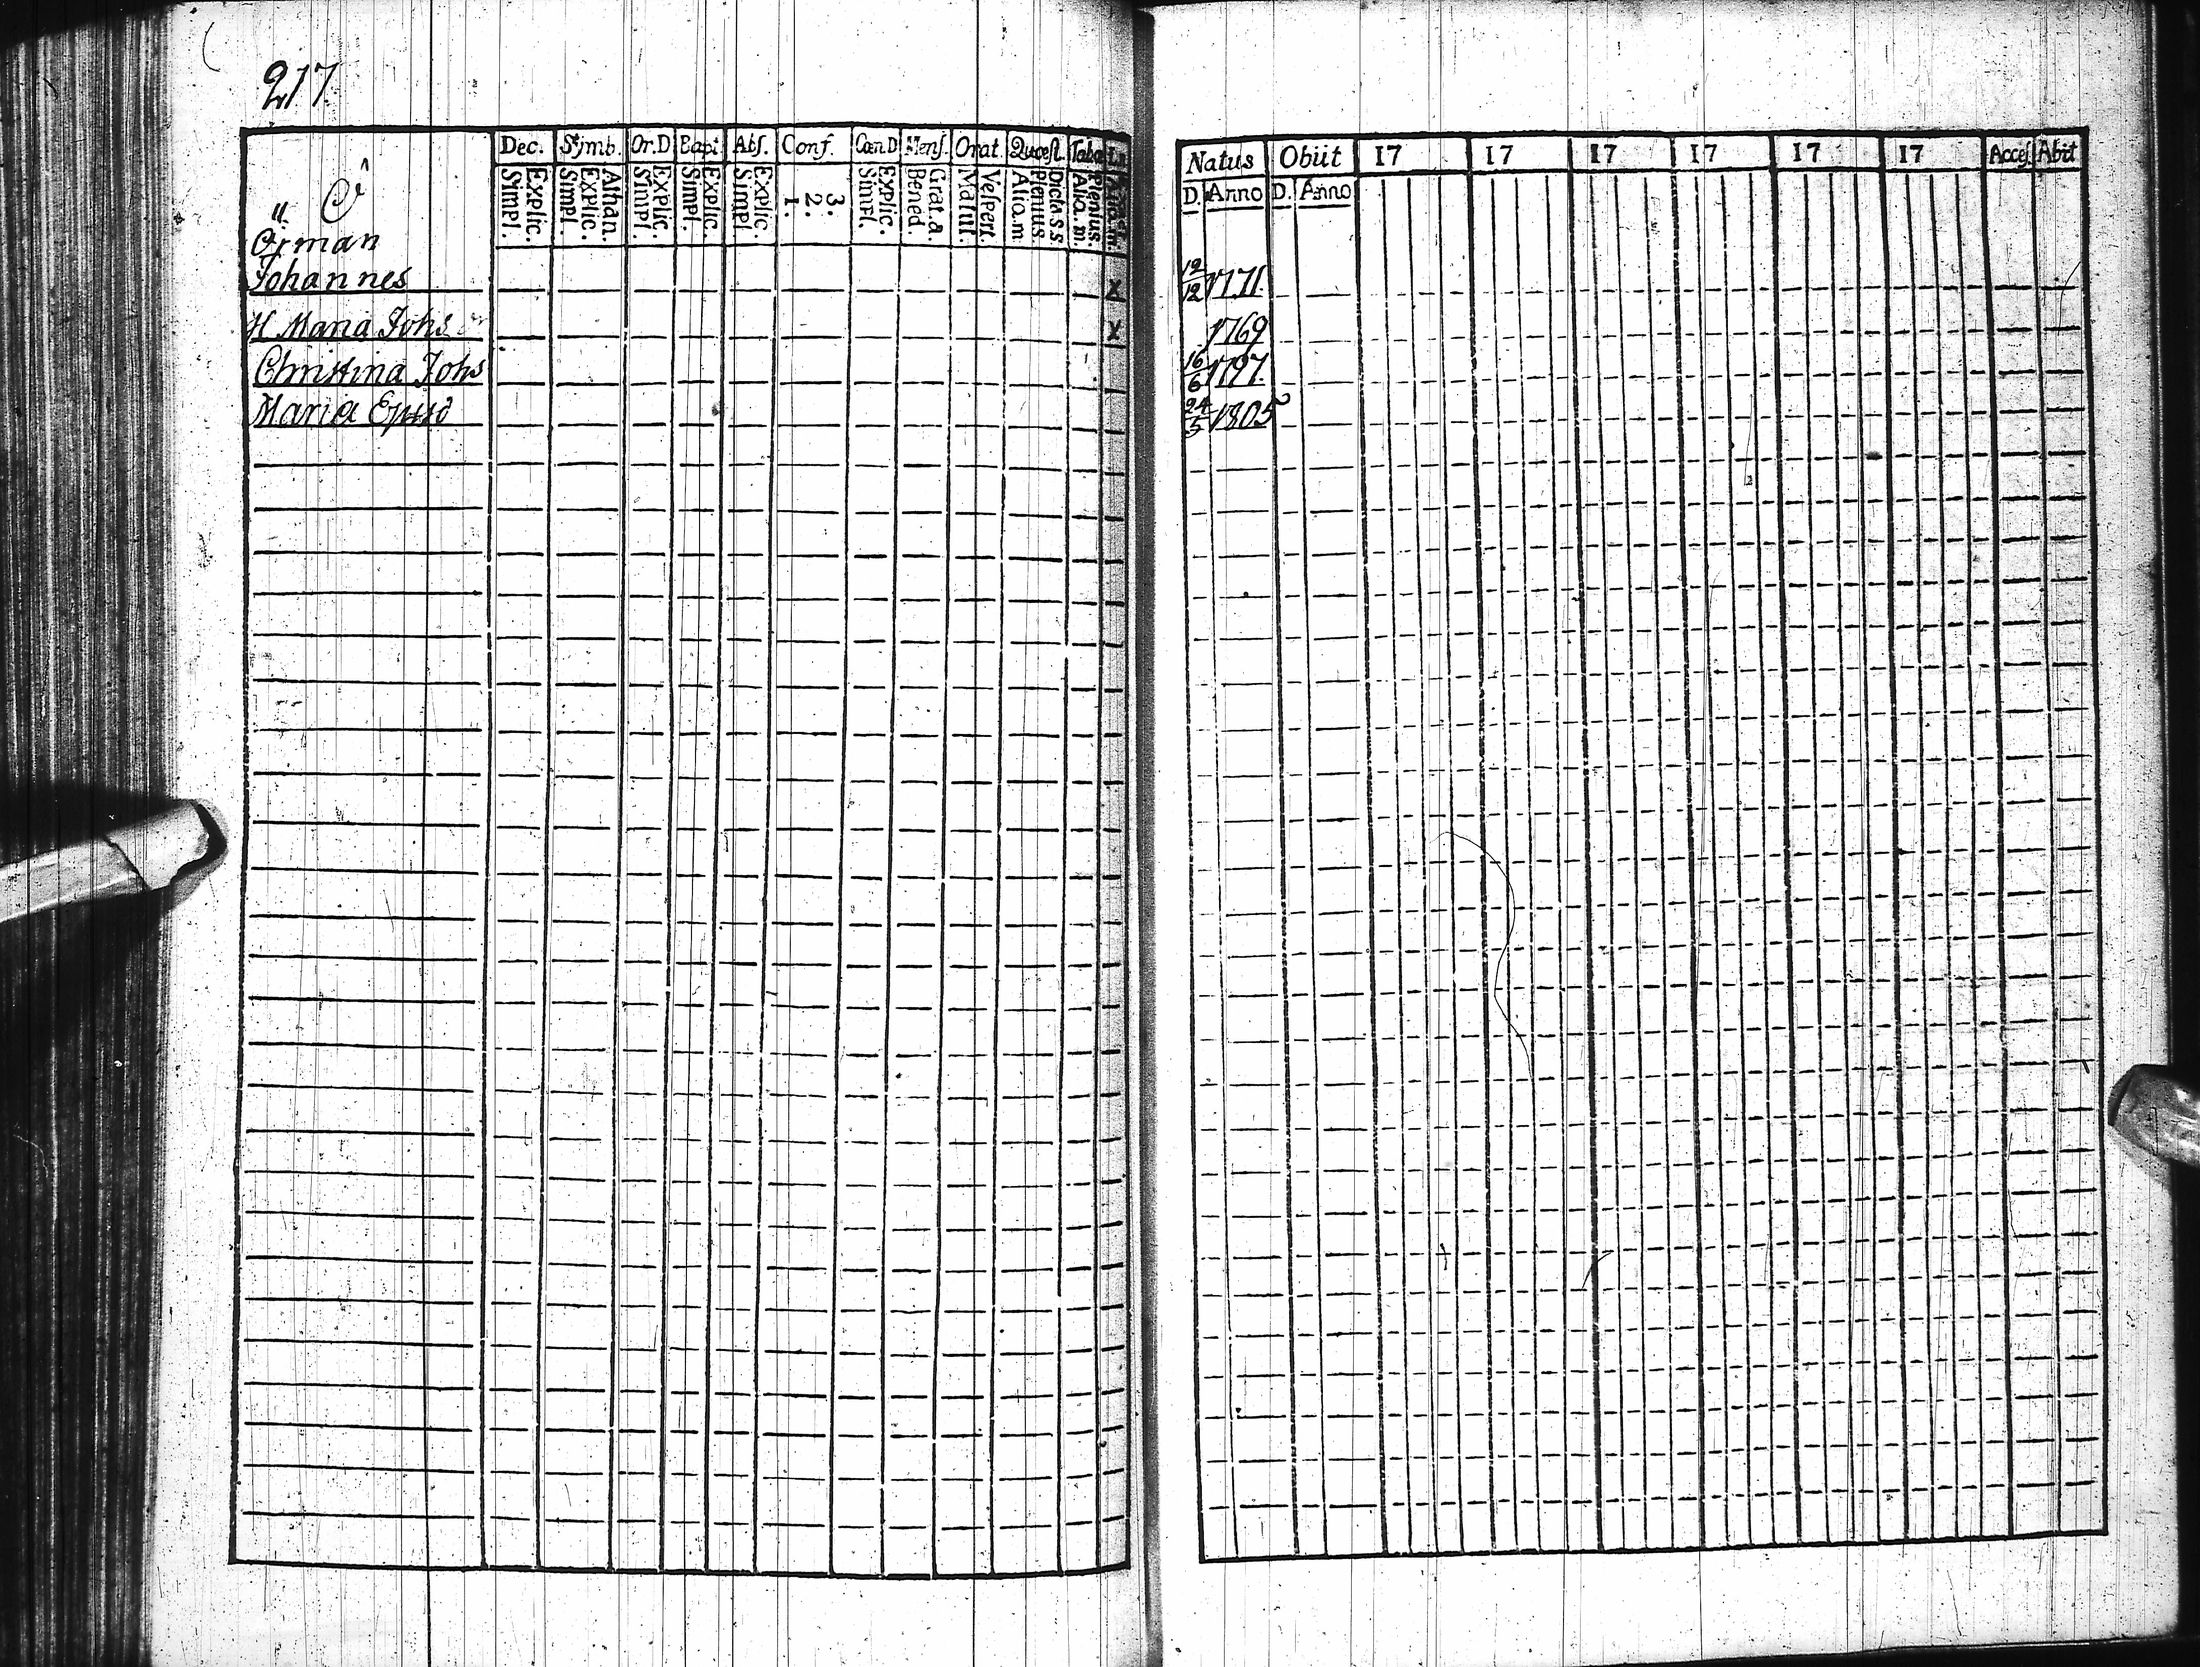 217
Dec. Symb. Or.D Bapt. Abs. Conf. Cœn D Mens. Orat. Quæst. Taba
Simpl. Explic. Simpl. Explic. Athan. Simpl. Explic. Simpl. Explic. Simpl. Explic. 1. 2. 3. Simpl. Explic. Bened. Grat.a. Matut. Vespert. Alio.m. Plenius. Dicta s.s. Alio.m. Plenius.
Natus Obiit 17 17 17 17 17 17 Acces. Abit
D. Anno D. Anno
Ö
Örman
Johannes x 12/12 1771.
H Maria Johs x 1769
Christina Johs 16/6 1797.
Maria 24/5 1805